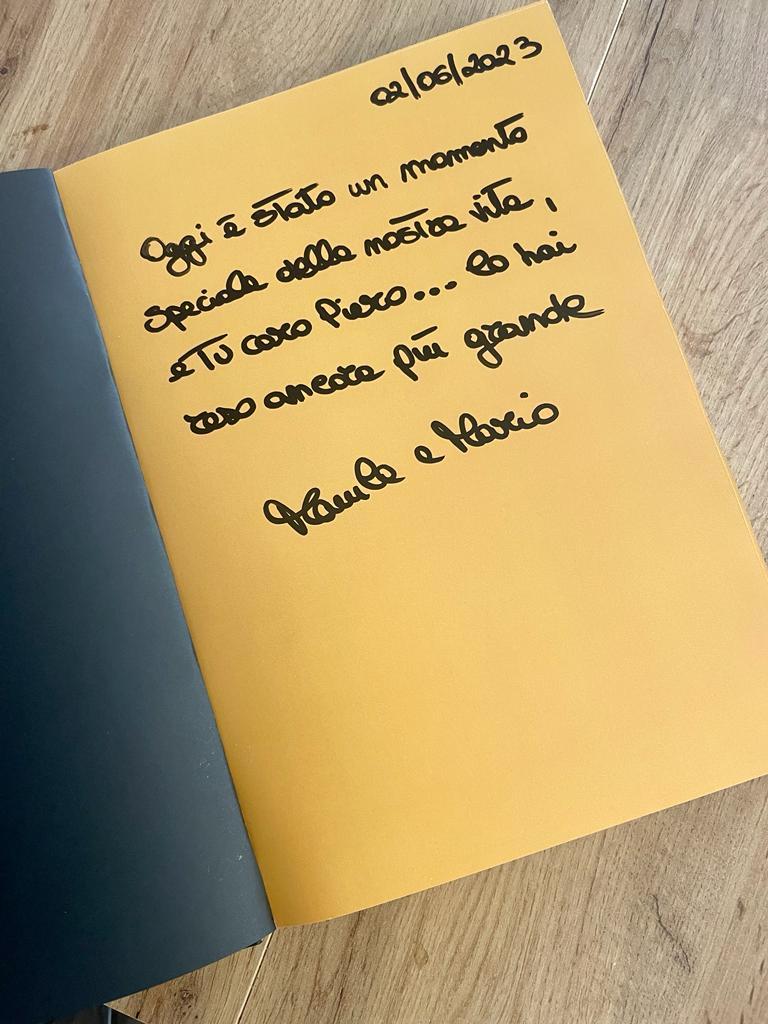 02/06/2023
Oggi è stato un momento
speciale della nostra vita,
e Tu caro Piero... lo hai
reso ancora più grande
Manila e Mario